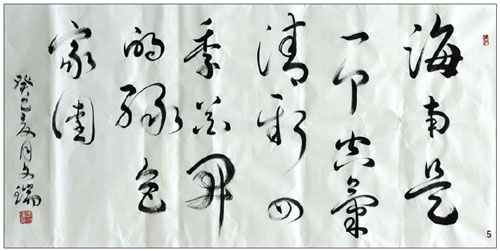 海南是
一个空氣
清新四
季花開
的綠色
家園
癸巳夏月文瑞
5